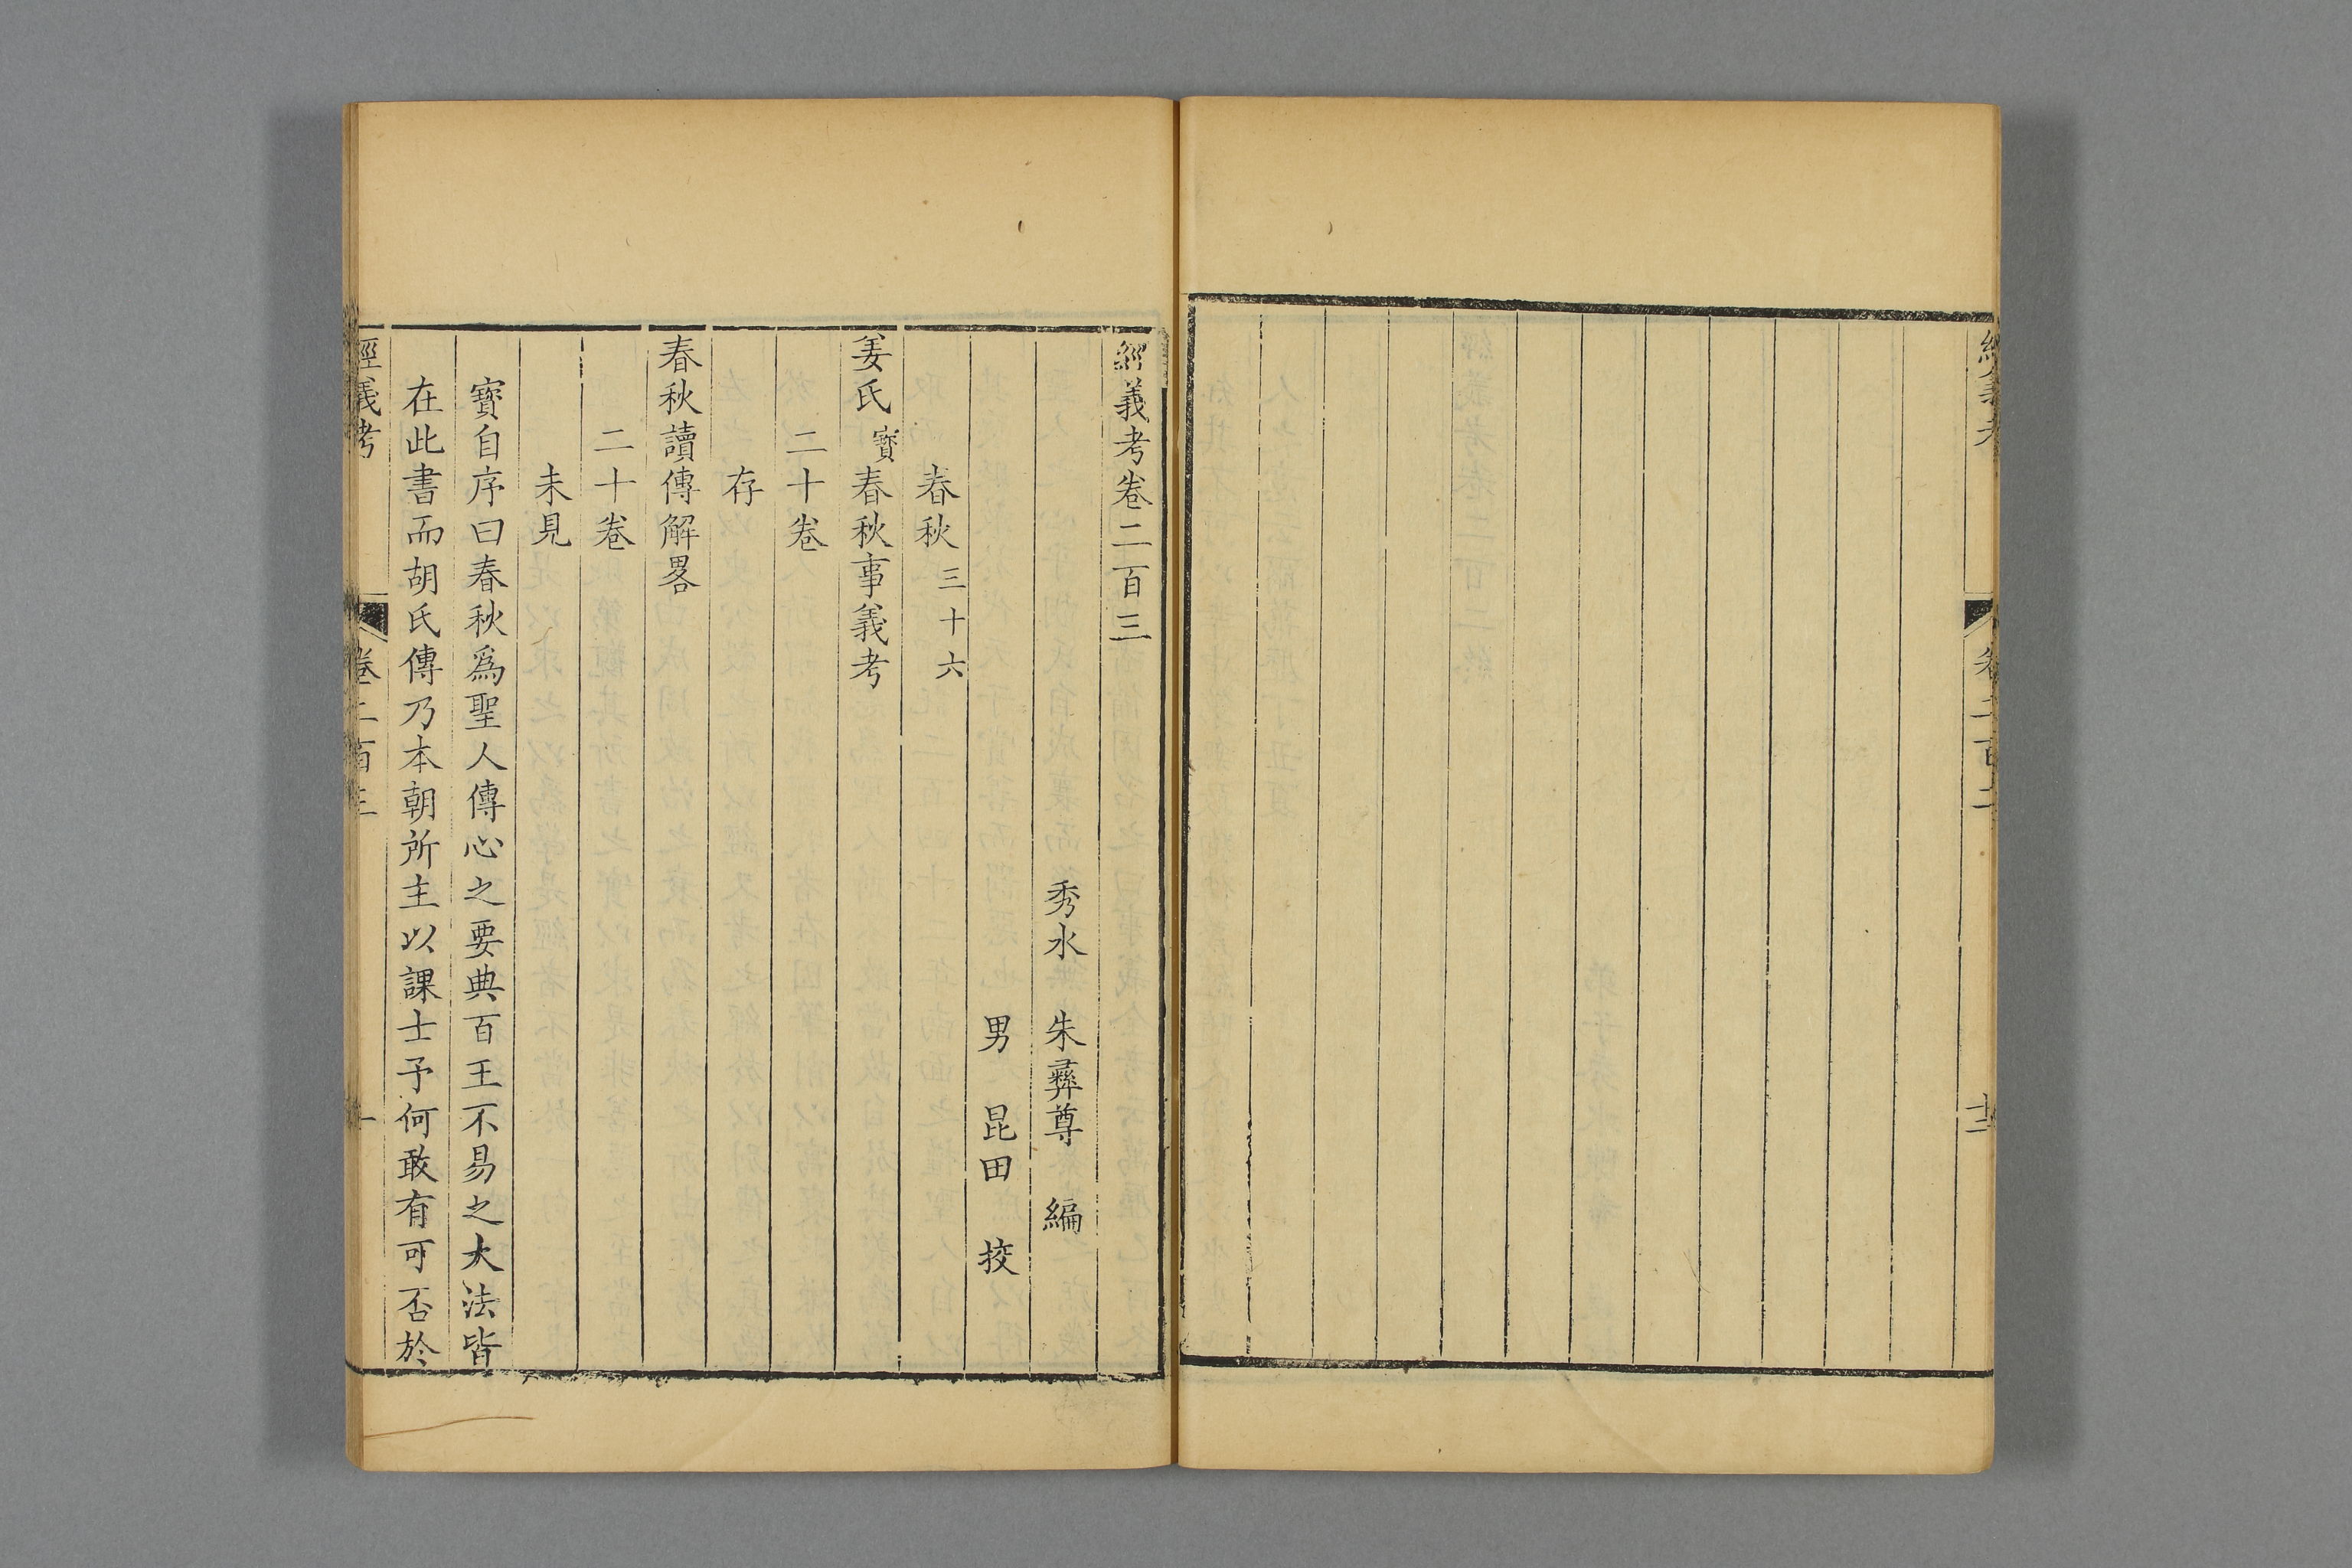 經義考
卷二百二
經義考卷二百三
秀水 朱彝尊 編
男 昆田 挍
春秋三十六
姜氏寳春秋事義考
二十卷
存
春秋讀傳解畧
二十卷
未見
寳自序曰春秋爲聖人傳心之要典百王不易之大法皆
在此書而胡氏傳乃本朝所主以課士予何敢有可否於
經義考
卷二百三
一